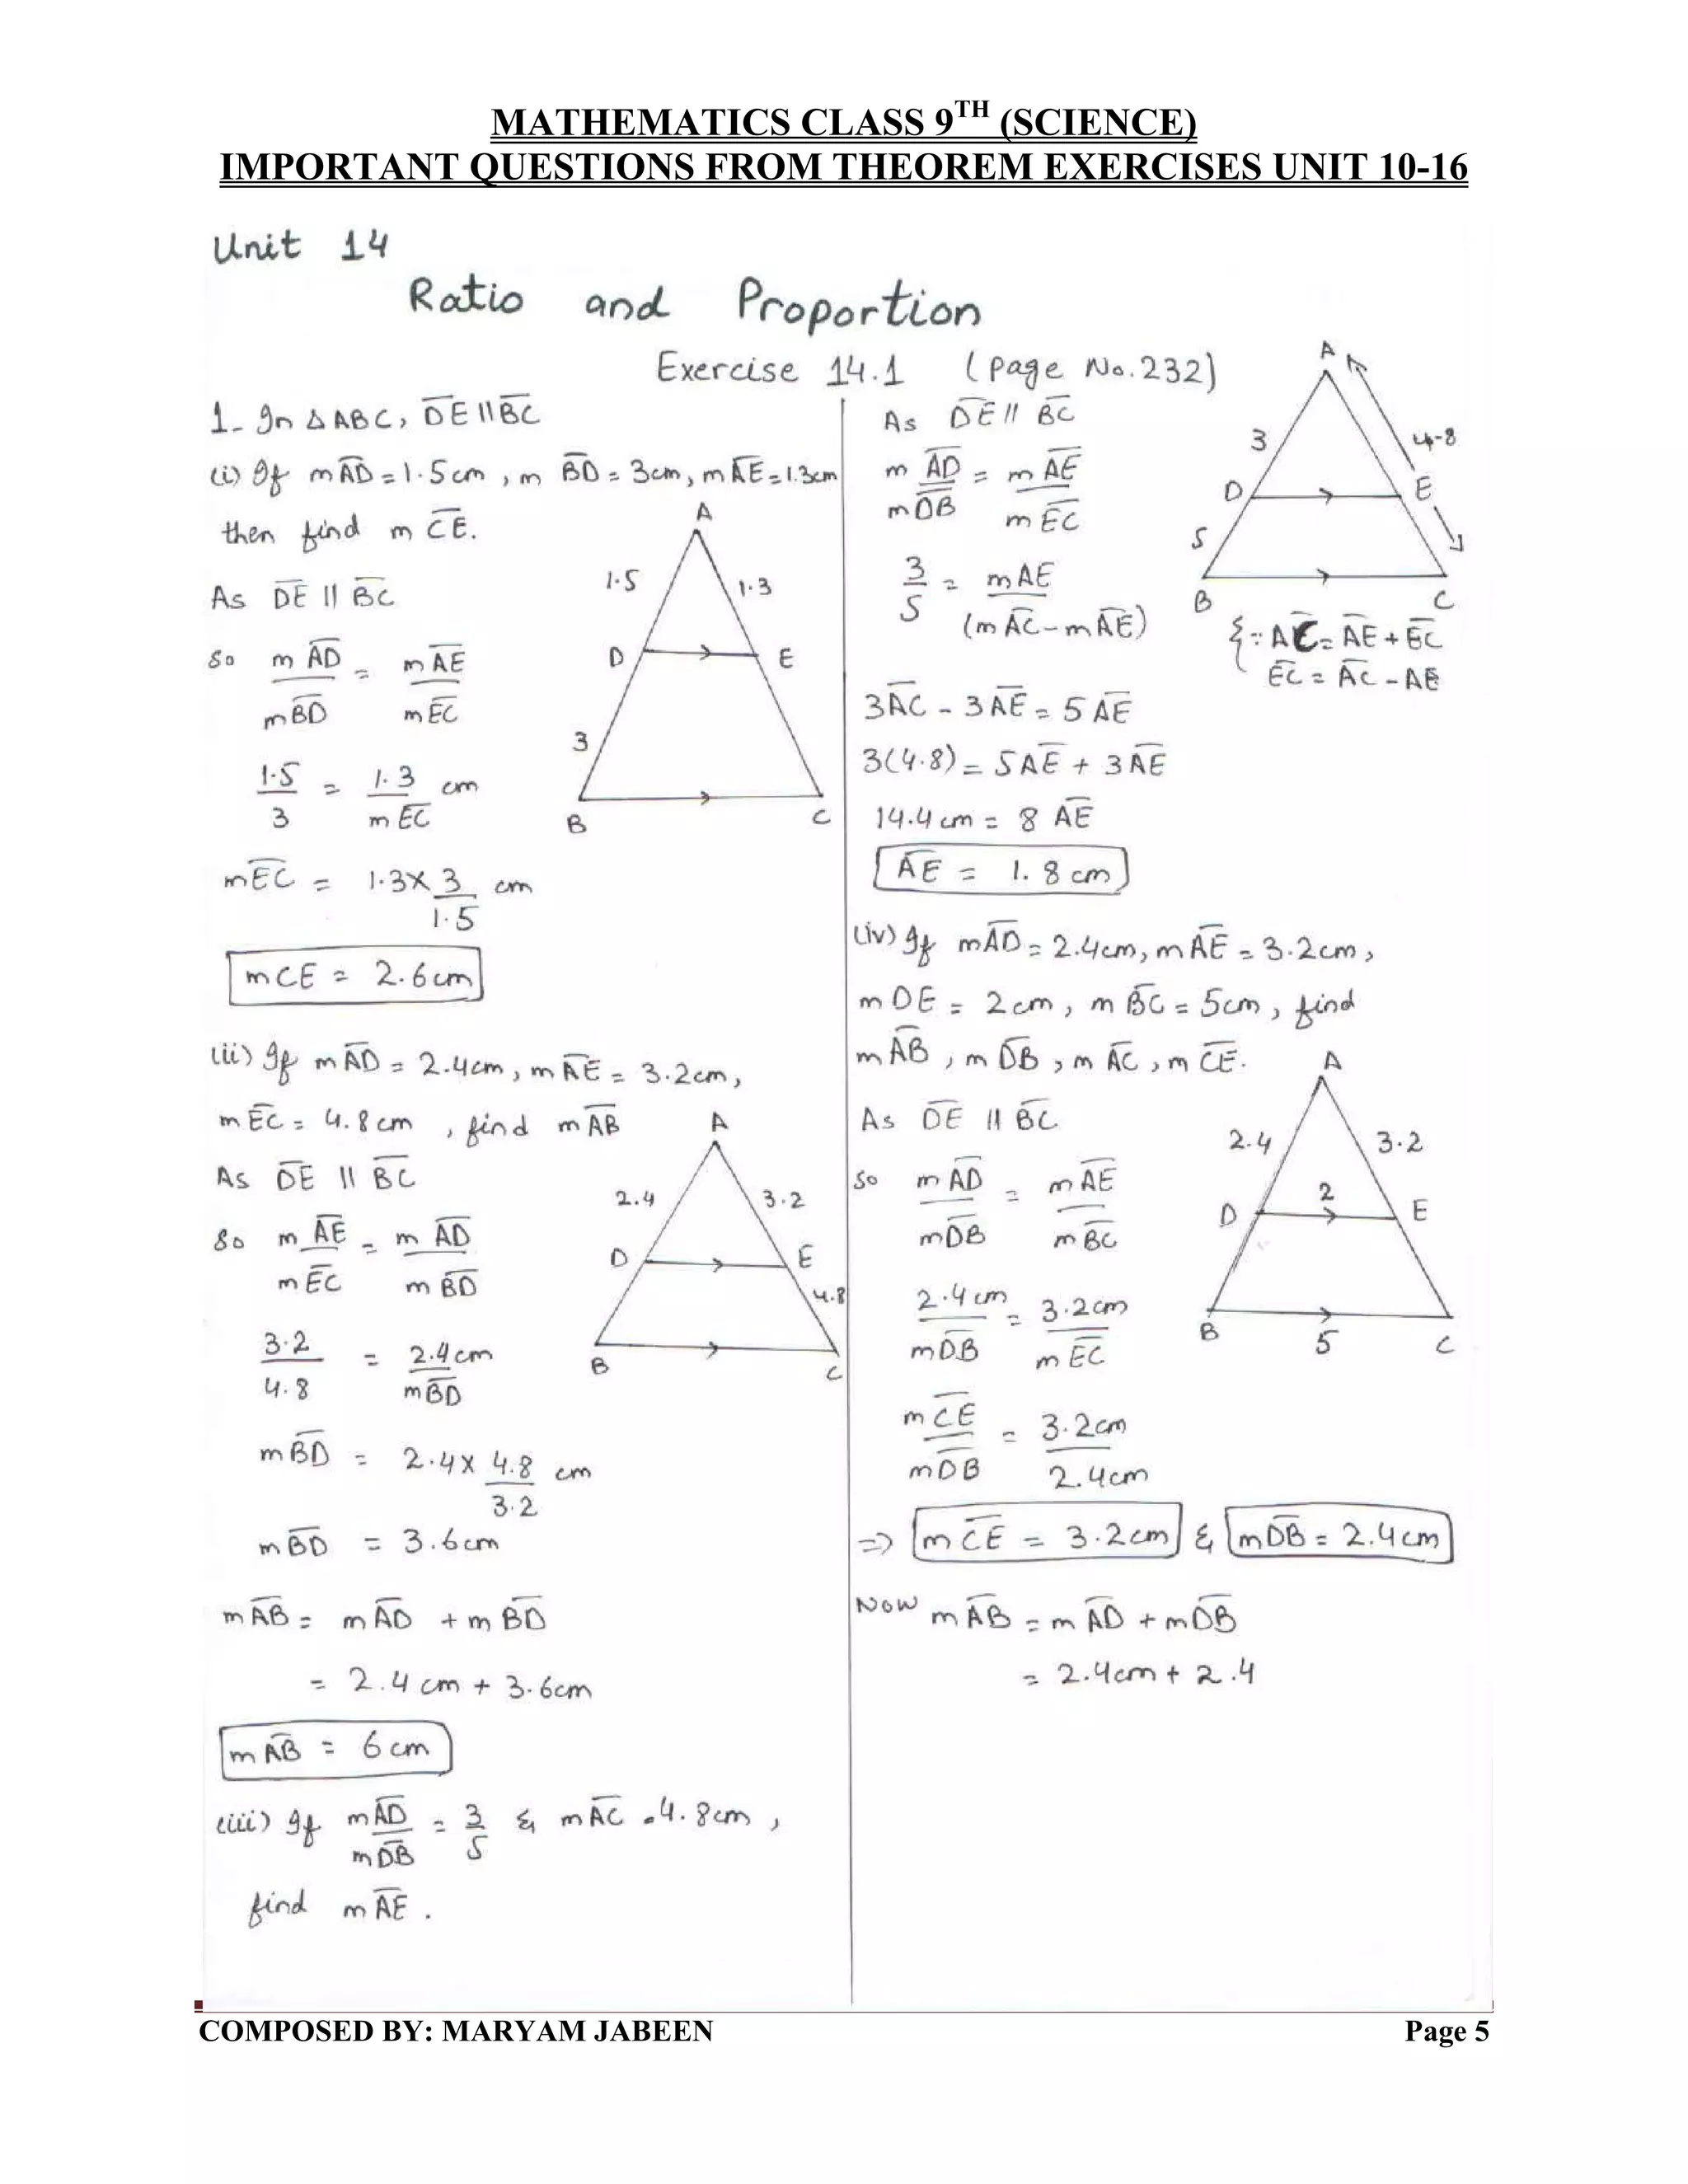 MATHEMATICS CLASS 9TH (SCIENCE)
IMPORTANT QUESTIONS FROM THEOREM EXERCISES UNIT 10-16
Unit 14
Ratio and Proportion
Exercise 14.1 (page No.232)
1- In △ABC, D̅E̅ || B̅C̅
(i) If mA̅D̅ = 1.5cm, m B̅D̅ = 3cm, mA̅E̅ = 1.3cm
then find m C̅E̅.
A
1.5
1.3
D
E
3
B
C
As D̅E̅ || B̅C̅
So mA̅D̅/mB̅D̅ = mA̅E̅/mE̅C̅
1.5/3 = 1.3/mE̅C̅ cm
mE̅C̅ = 1.3×3/1.5 cm
mCE = 2.6cm
(ii) If mA̅D̅ = 2.4cm, mA̅E̅ = 3.2cm,
mE̅C̅ = 4.8cm, find mA̅B̅
A
2.4
3.2
D
E
4.8
B
C
As D̅E̅ || B̅C̅
So mA̅E̅/mE̅C̅ = mA̅D̅/mB̅D̅
3.2/4.8 = 2.4cm/mB̅D̅
mB̅D̅ = 2.4×4.8/3.2 cm
mB̅D̅ = 3.6cm
mA̅B̅ = mA̅D̅ + mB̅D̅
= 2.4cm + 3.6cm
mA̅B̅ = 6cm
(iii) If mA̅D̅/mD̅B̅ = 3/5 & mA̅C̅ = 4.8cm,
find mA̅E̅.
As D̅E̅ || B̅C̅
mA̅D̅/mD̅B̅ = mA̅E̅/mE̅C̅
3/5 = mAE/(mA̅C̅ - mA̅E̅)
A
3
4.8
D
E
5
B
C
{∵ A̅C̅ = A̅E̅ + E̅C̅
E̅C̅ = A̅C̅ - AE
3A̅C̅ - 3A̅E̅ = 5A̅E̅
3(4.8) = 5A̅E̅ + 3A̅E̅
14.4cm = 8 A̅E̅
A̅E̅ = 1.8cm
(iv) If mA̅D̅ = 2.4cm, mA̅E̅ = 3.2cm,
mDE = 2cm, m B̅C̅ = 5cm, find
mA̅B̅, m D̅B̅, m A̅C̅, m C̅E̅.
A
2.4
3.2
D
2
E
B
5
C
As D̅E̅ || B̅C̅
So mA̅D̅/mD̅B̅ = mA̅E̅/mB̅C̅
2.4cm/mD̅B̅ = 3.2cm/mE̅C̅
mC̅E̅/mD̅B̅ = 3.2cm/2.4cm
=> mC̅E̅ = 3.2cm & mD̅B̅ = 2.4cm
Now mA̅B̅ = mA̅D̅ + mD̅B̅
= 2.4cm + 2.4
COMPOSED BY: MARYAM JABEEN Page 5